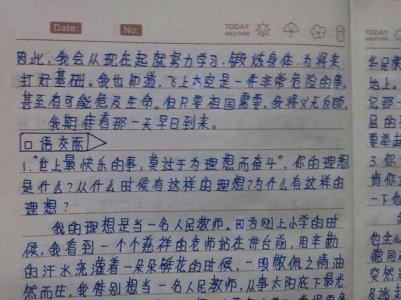 Date:
No:
TODAY
WEATHER
TODAY
WEATHER
因此,我会从现在起就努力学习,锻炼身体,为将来
打好基础。我也知道,飞上太空是一件非常危险的事,
甚至有可能危及生命。但只要祖国需要,我将义无反顾。
我期待着那一天早日到来。
口语交际
1."世上最快乐的事,莫过于为理想而奋斗"。你的理想
是什么?从什么时候有这样的理想?为什么有这样的
理想?
我的理想是当一名人民教师。因为刚上小学的时
候,我看到一个个慈祥的老师站在讲台前,用辛勤
的汗水浇灌着一朵朵鲜花的时候,一股敬佩之情油
然而生,我特别想当一名人民教师,从事太阳底下最光